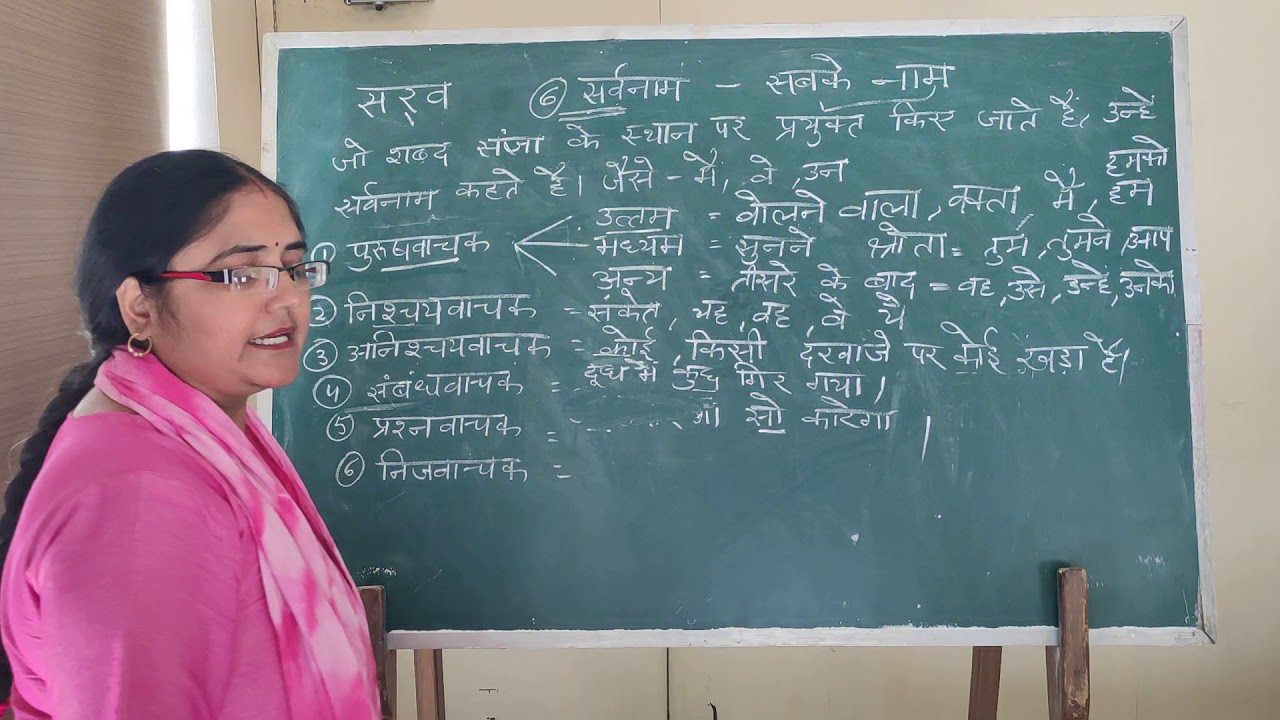 सर्व ⑥ सर्वनाम - सबके नाम
जो शब्द संज्ञा के स्थान पर प्रयुक्त किए जाते हैं, उन्हें
सर्वनाम कहते हैं। जैसे - मैं, वे, उन
हमको
उत्तम = बोलने वाला, वक्ता मैं, हम
① पुरुषवाचक मध्यम = सुनने श्रोता = तुम, तुमने, आप
अन्य = तीसरे के बाद = वह, उसे, उन्हें, उनको
② निश्चयवाचक = संकेत, यह, वह, वे ये
③ अनिश्चयवाचक = कोई, किसी दरवाजे पर कोई खड़ा है।
दूध में गिर गया।
④ संबंधवाचक =
सो करेगा
⑤ प्रश्नवाचक =
⑥ निजवाचक =